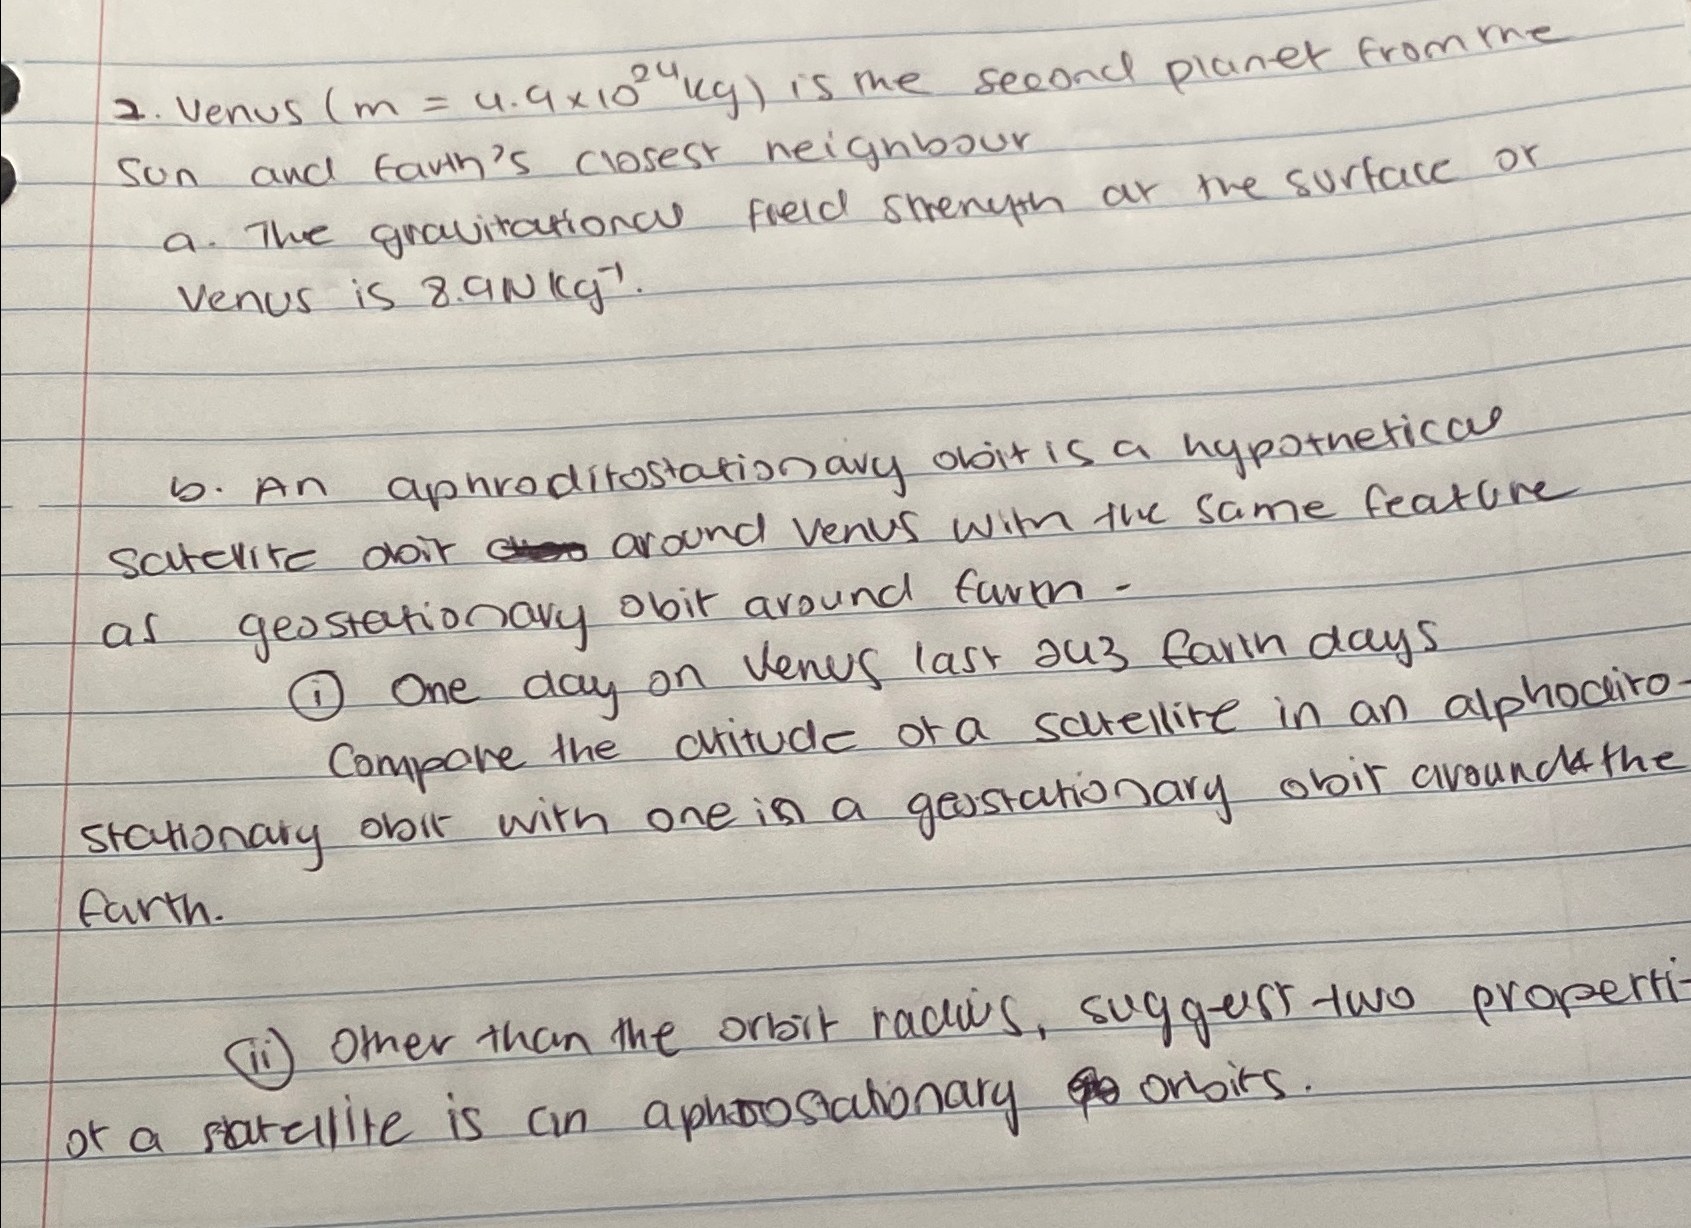 2. Venus (m = 4.9x10²⁴kg) is the second planet from the
Sun and Earth's closest neighbour
a. The gravitational field strength at the surface of
Venus is 8.9Nkg⁻¹.
b. An aphroditostationary obit is a hypothetical
satellite obit around Venus with the same feature
as geostationary obit around Earth -
(i) One day on Venus last 243 Earth days
Compare the altitude of a satellite in an alphodito-
stationary obit with one in a geostationary obit around the
Earth.
(ii) Other than the orbit radius, suggest two properti-
of a satellite is an aphrostationary orbits.